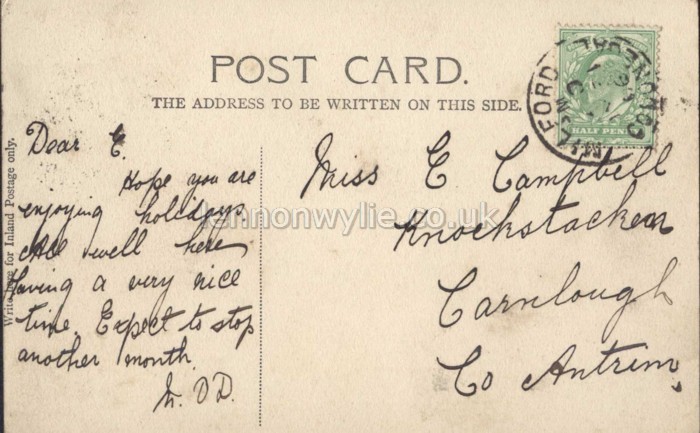 POST CARD.
THE ADDRESS TO BE WRITTEN ON THIS SIDE.
Write here for Inland Postage only.
Dear E.
Hope you are
enjoying holidays.
All well here
Having a very nice
time. Expect to stop
another month.
M. OD.
Miss E Campbell
Knockstacken
Carnlough
Co Antrim
HALF PENNY
FORD
CO. DONEGAL
lennonwylie.co.uk